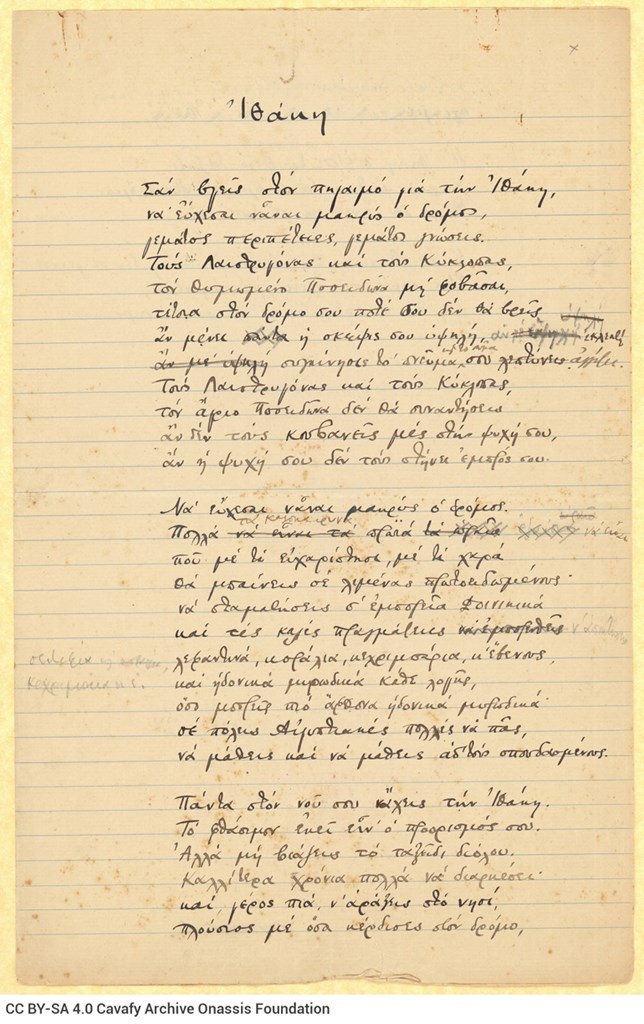 Ἰθάκη
Σὰν βγεῖς στὸν πηγαιμὸ γιὰ τὴν Ἰθάκη,
νὰ εὔχεσαι νἆναι μακρὺς ὁ δρόμος,
γεμάτος περιπέτειες, γεμάτος γνώσεις.
Τοὺς Λαιστρυγόνας καὶ τοὺς Κύκλωπας,
τὸν θυμωμένο Ποσειδῶνα μὴ φοβᾶσαι,
τέτοια στὸν δρόμο σου ποτέ σου δὲν θὰ βρεῖς
ἂν μένει πάντα ἡ σκέψις σου ὑψηλή, ἂν ἐκλεκτὴ
ἂν μὲ ὑψηλὴ συγκίνησις τὸ πνεῦμα σου ἀγγίζει.
Τοὺς Λαιστρυγόνας καὶ τοὺς Κύκλωπας,
τὸν ἄγριο Ποσειδῶνα δὲν θὰ συναντήσεις
ἂν δὲν τοὺς κουβανεῖς μὲς στὴν ψυχή σου,
ἂν ἡ ψυχή σου δὲν τοὺς στήνει ἐμπρός σου.
Νὰ εὔχεσαι νἆναι μακρὺς ὁ δρόμος.
τὰ καλοκαιρινὰ
Πολλὰ νὰ εἶναι τὰ πρωϊὰ νὰ εἶναι
ποὺ μὲ τί εὐχαρίστησι, μὲ τί χαρὰ
θὰ μπαίνεις σὲ λιμένας πρωτοειδωμένους·
νὰ σταματήσεις σ' ἐμπορεῖα Φοινικικὰ
καὶ τὲς καλὲς πραγμάτειες ν' ἀποκτήσεις
σεντέφια
κεχριμπάρια κι
λεβαντινά, κοράλια, κεχριμπάρια, κ' ἔβενους,
καὶ ἡδονικὰ μυρωδικὰ κάθε λογῆς,
ὅσο μπορεῖς πιὸ ἄφθονα ἡδονικὰ μυρωδικά·
σὲ πόλεις Αἰγυπτιακὲς πολλὲς νὰ πᾷς,
νὰ μάθεις καὶ νὰ μάθεις ἀπ' τοὺς σπουδασμένους.
Πάντα στὸν νοῦ σου νἄχεις τὴν Ἰθάκη.
Τὸ φθάσιμον ἐκεῖ εἶν' ὁ προορισμός σου.
Ἀλλὰ μὴ βιάζεις τὸ ταξεῖδι διόλου.
Καλλίτερα χρόνια πολλὰ νὰ διαρκέσει·
καί, γέρος πιά, ν' ἀράξεις στὸ νησί,
πλούσιος μὲ ὅσα κέρδισες στὸν δρόμο,
CC BY-SA 4.0 Cavafy Archive Onassis Foundation